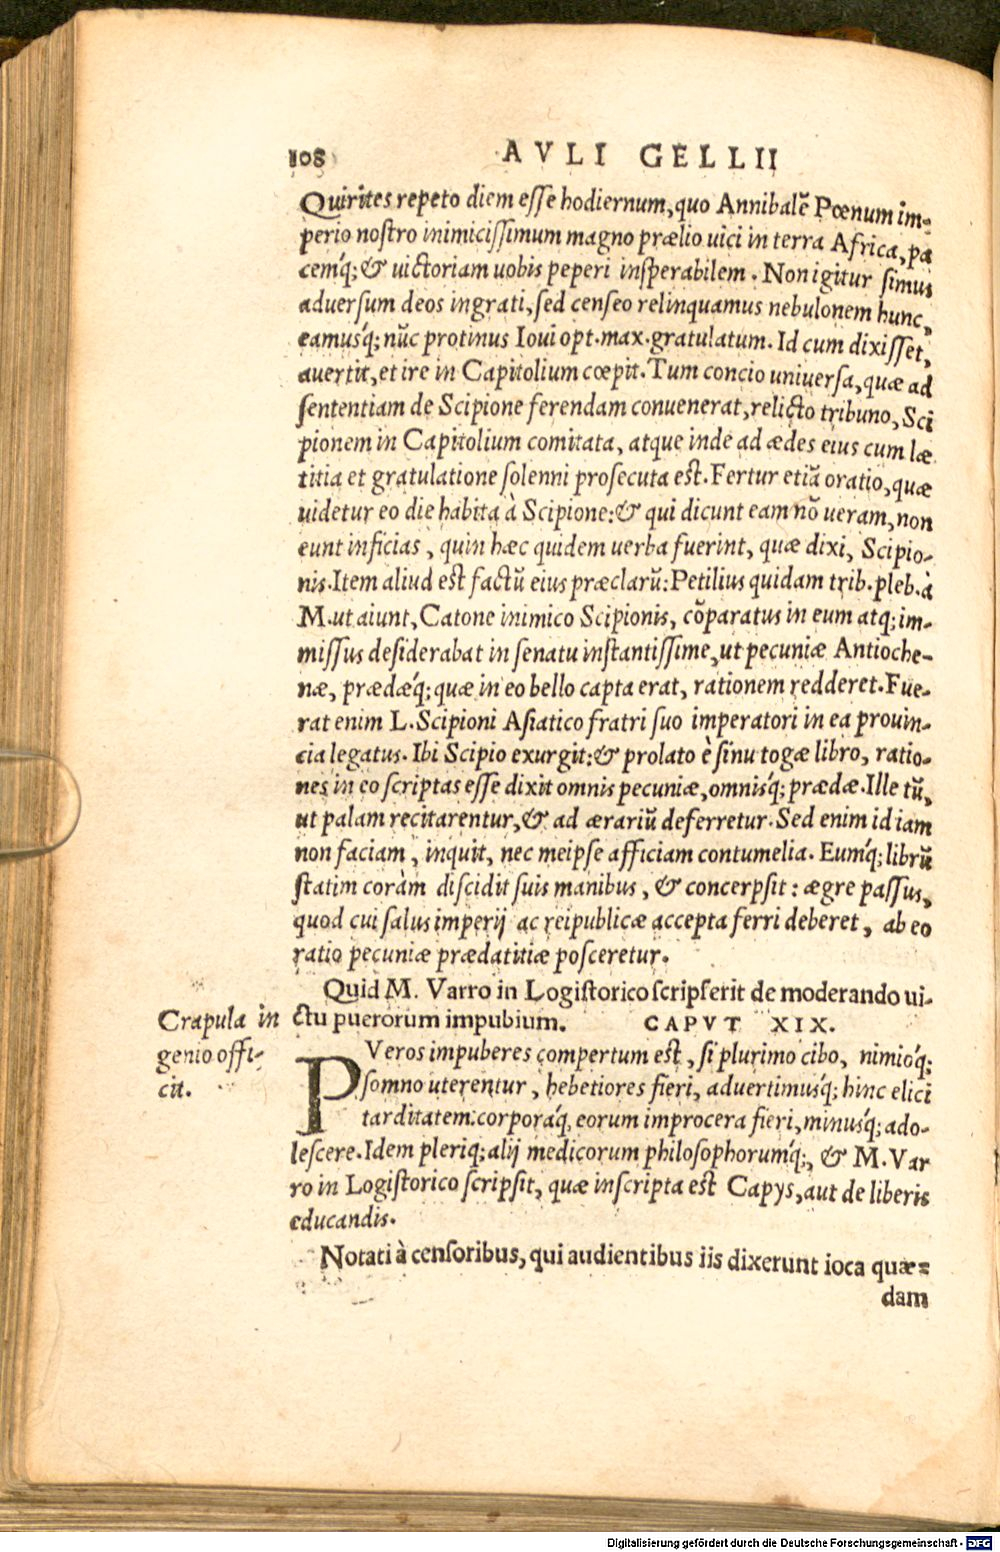 108 AVLI GELLII
Quirites repeto diem esse hodiernum, quo Annibalē Pœnum im-
perio nostro inimicissimum magno prælio uici in terra Africa, pa
cemq́; & uictoriam uobis peperi insperabilem. Non igitur simus
aduersum deos ingrati, sed censeo relinquamus nebulonem hunc,
eamusq́; nūc protinus Ioui opt. max. gratulatum. Id cum dixisset,
auertit, et ire in Capitolium cœpit. Tum concio uniuersa, quæ ad
sententiam de Scipione ferendam conuenerat, relicto tribuno, Sci
pionem in Capitolium comitata, atque inde ad ædes eius cum læ
titia et gratulatione solenni prosecuta est. Fertur etiā oratio, quæ
uidetur eo die habita à Scipione: & qui dicunt eam nō ueram, non
eunt inficias, quin hæc quidem uerba fuerint, quæ dixi, Scipio-
nis. Item aliud est factū eius præclarū: Petilius quidam trib. pleb. à
M. ut aiunt, Catone inimico Scipionis, cōparatus in eum atq; im-
missus desiderabat in senatu instantissime, ut pecuniæ Antioche-
næ, prædæq́; quæ in eo bello capta erat, rationem redderet. Fue-
rat enim L. Scipioni Asiatico fratri suo imperatori in ea prouin-
cia legatus. Ibi Scipio exurgit: & prolato è sinu togæ libro, ratio-
nes in eo scriptas esse dixit omnis pecuniæ, omnisq́; prædæ. Ille tū,
ut palam recitarentur, & ad ærariū deferretur. Sed enim id iam
non faciam, inquit, nec meipse afficiam contumelia. Eumq́; librū
statim coràm discidit suis manibus, & concerpsit: ægre passus,
quod cui salus imperij ac reipublicæ accepta ferri deberet, ab eo
ratio pecuniæ prædatitiæ posceretur.
Quid M. Varro in Logistorico scripserit de moderando ui-
ctu puerorum impubium. CAPVT XIX.
Crapula in
genio offi-
cit.
PVeros impuberes compertum est, si plurimo cibo, nimioq́;
somno uterentur, hebetiores fieri, aduertimusq́; hinc elici
tarditatem: corporaq́, eorum improcera fieri, minusq́; ado-
lescere. Idem pleriq; alij medicorum philosophorumq́;, & M. Var
ro in Logistorico scripsit, quæ inscripta est Capys, aut de liberis
educandis.
Notati à censoribus, qui audientibus iis dixerunt ioca quæ-
dam
Digitalisierung gefördert durch die Deutsche Forschungsgemeinschaft - DFG